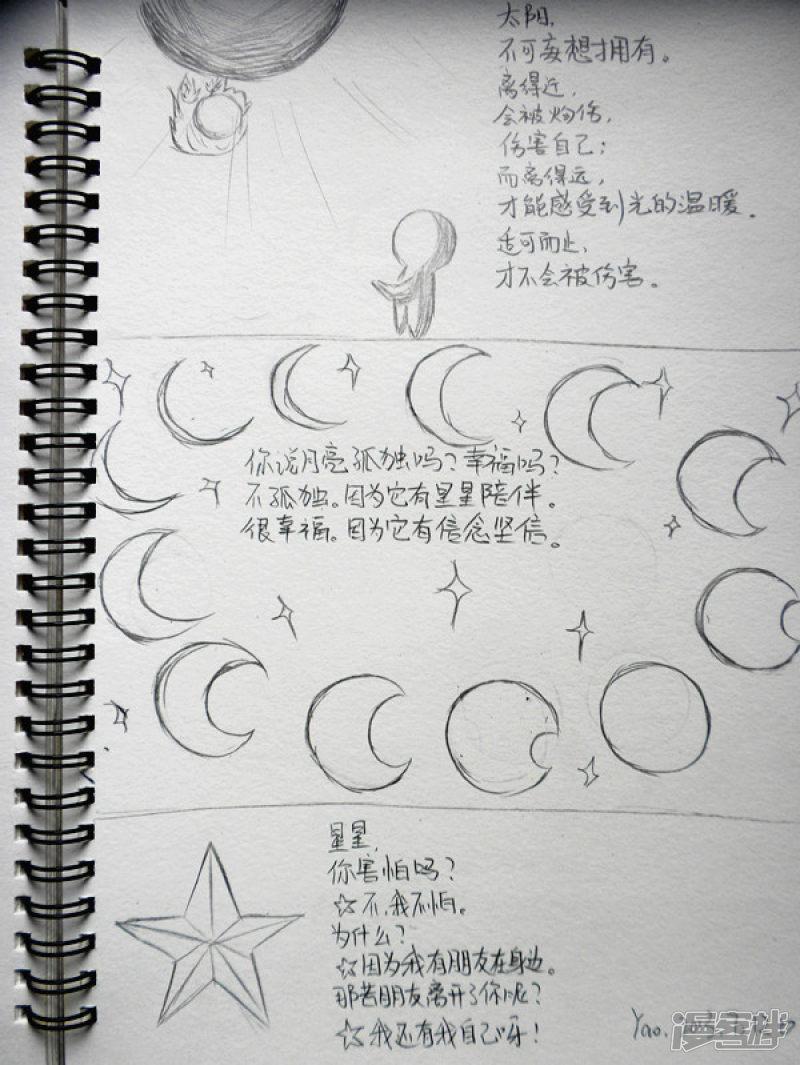 太阳，
不可妄想才拥有。
离得近，
会被灼伤，
伤害自己；
而离得远，
才能感受到光的温暖。
适可而止，
才不会被伤害。
你说月亮孤独吗？幸福吗？
不孤独。因为它有星星陪伴。
很幸福。因为它有信念坚信。
星星，
你害怕吗？
☆不，我不怕。
为什么？
☆因为我有朋友在身边。
那若朋友离开了你呢？
☆我还有我自己呀！
Yao.
漫客栈